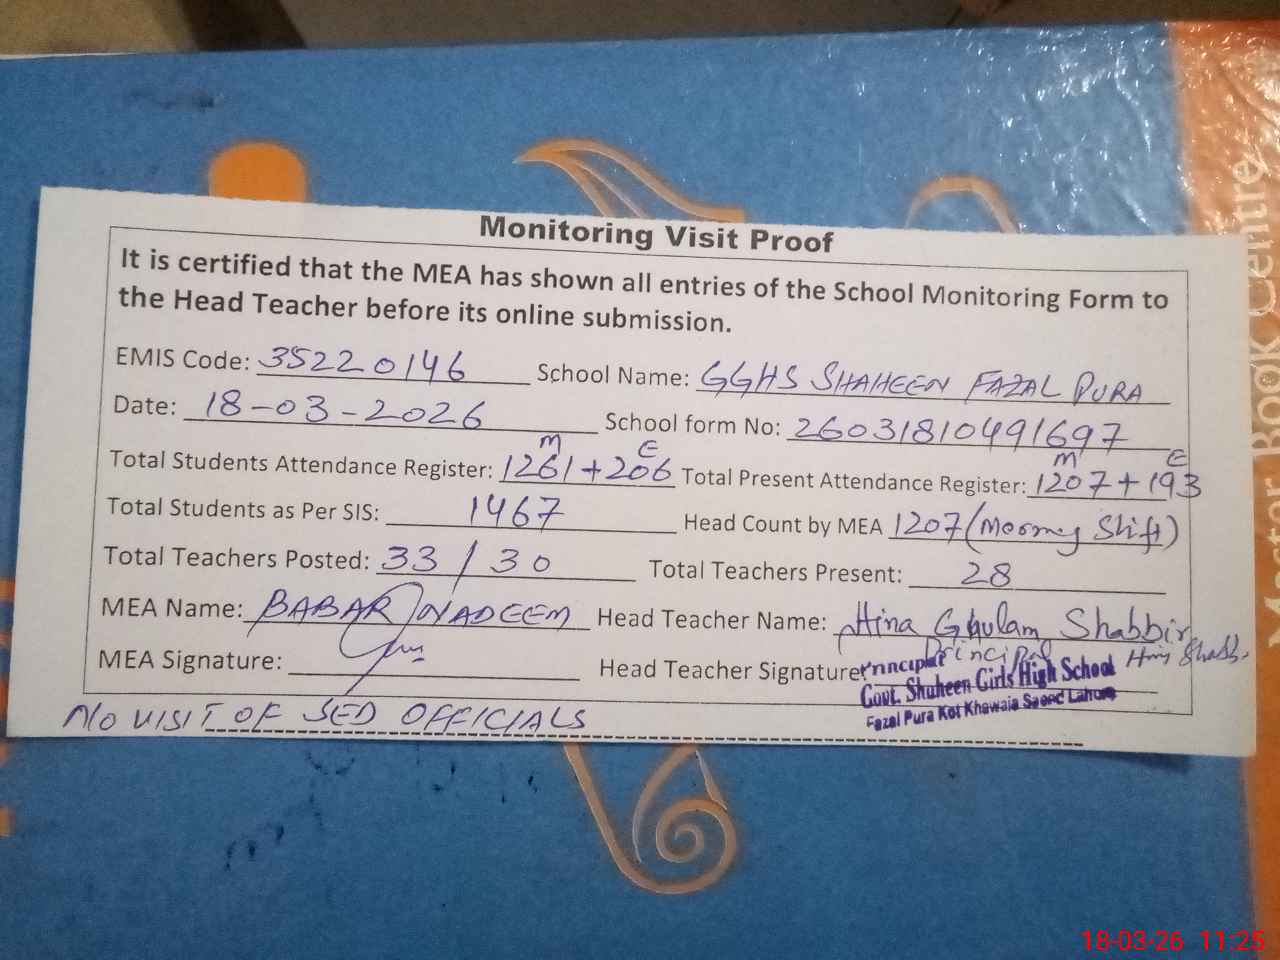 Monitoring Visit Proof
It is certified that the MEA has shown all entries of the School Monitoring Form to
the Head Teacher before its online submission.
EMIS Code: 35220146 School Name: GGHS SHAHEEN FAZAL PURA
Date: 18-03-2026 School form No: 26031810491697
M E M E
Total Students Attendance Register: 1261+206 Total Present Attendance Register: 1207+193
Total Students as Per SIS: 1467 Head Count by MEA 1207 (Morning Shift)
Total Teachers Posted: 33/30 Total Teachers Present: 28
MEA Name: BABAR NADEEM Head Teacher Name: Hina Ghulam Shabbir
Principal
MEA Signature: Head Teacher Signature Principal
Govt. Shaheen Girls High School
Fazal Pura Kot Khawaja Saeed Lahore
NO VISIT OF SED OFFICIALS
Master Book Centre
18-03-26 11:25